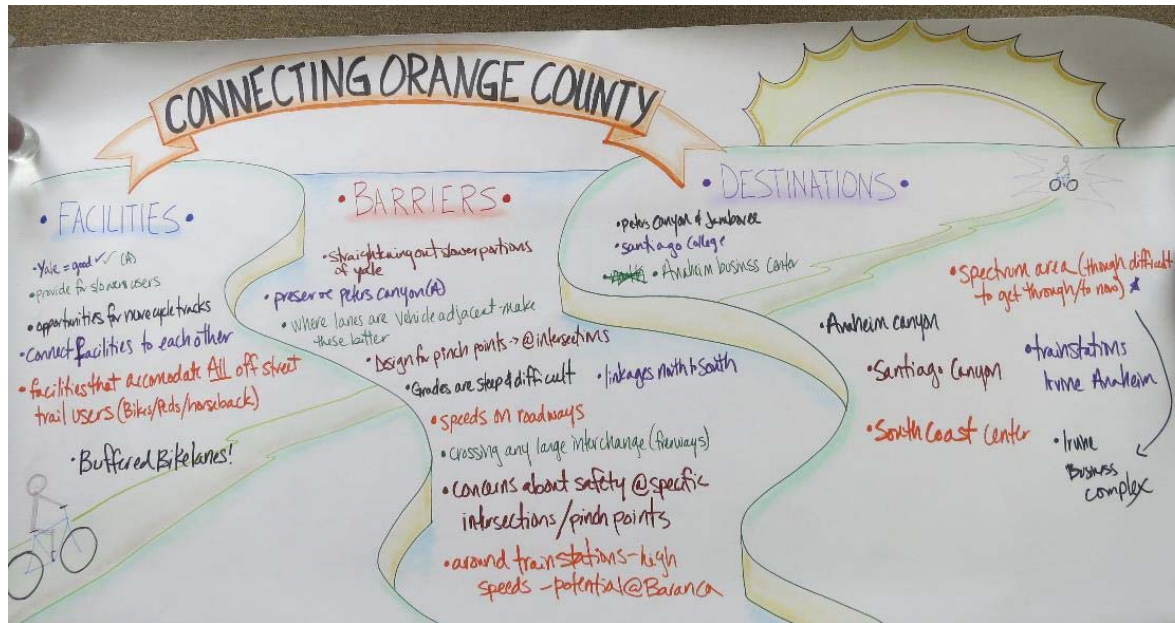 CONNECTING ORANGE COUNTY
• FACILITIES •
• Yale = good ✓✓ (A)
• provide for slower users
• opportunities for more cycle tracks
• Connect facilities to each other
• facilities that accomodate All off street
trail users (Bikes/Peds/horseback)
• Buffered Bikelanes!
• BARRIERS •
• straightening out slower portions
of yale
• preserve peters canyon (A)
• where lanes are vehicle adjacent - make
these better
• Design for pinch points → @ intersections
• Grades are steep & difficult
• linkages north to south
• speeds on roadways
• crossing any large interchange (freeways)
• concerns about safety @ specific
intersections / pinch points
• around trainstations - high
speeds - potential @ Baranca
• DESTINATIONS •
• peters canyon & Jamboree
• santiago college
• Anaheim business center
• spectrum area (though difficult
to get through/to now) *
• Anaheim canyon
• trainstations
Irvine Anaheim
• Santiago Canyon
• South Coast Center
• Irvine
Business
complex